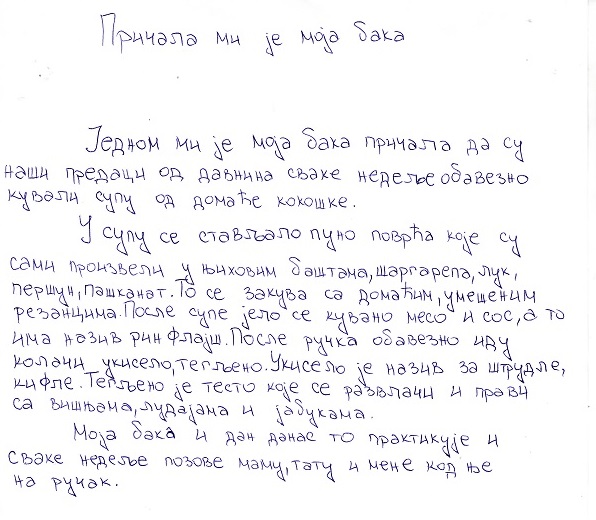 Причала ми је моја бака
Једном ми је моја бака причала да су
наши предаци од давнина сваке недеље обавезно
кували супу од домаће кокошке.
У супу се стављало пуно поврћа које су
сами произвели у њиховим баштама, шаргарепа, лук,
першун, пашканат. То се закува са домаћим, умешеним
резанцима. После супе јело се кувано месо и сос, а то
има назив ринфлајш. После ручка обавезно иду
колачи укисело, тегљено. Укисело је назив за штрудле,
кифле. Тегљено је тесто које се развлачи и прави
са вишњама, лудајама и јабукама.
Моја бака и дан данас то практикује и
сваке недеље позове маму, тату и мене код ње
на ручак.